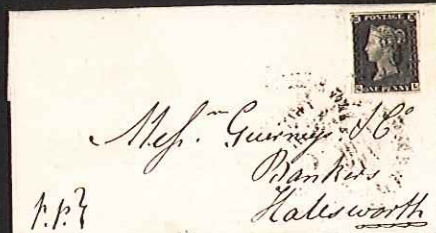 POSTAGE
ONE PENNY
Messrs Guerneys & Co
Bankers
Halesworth
p.p.